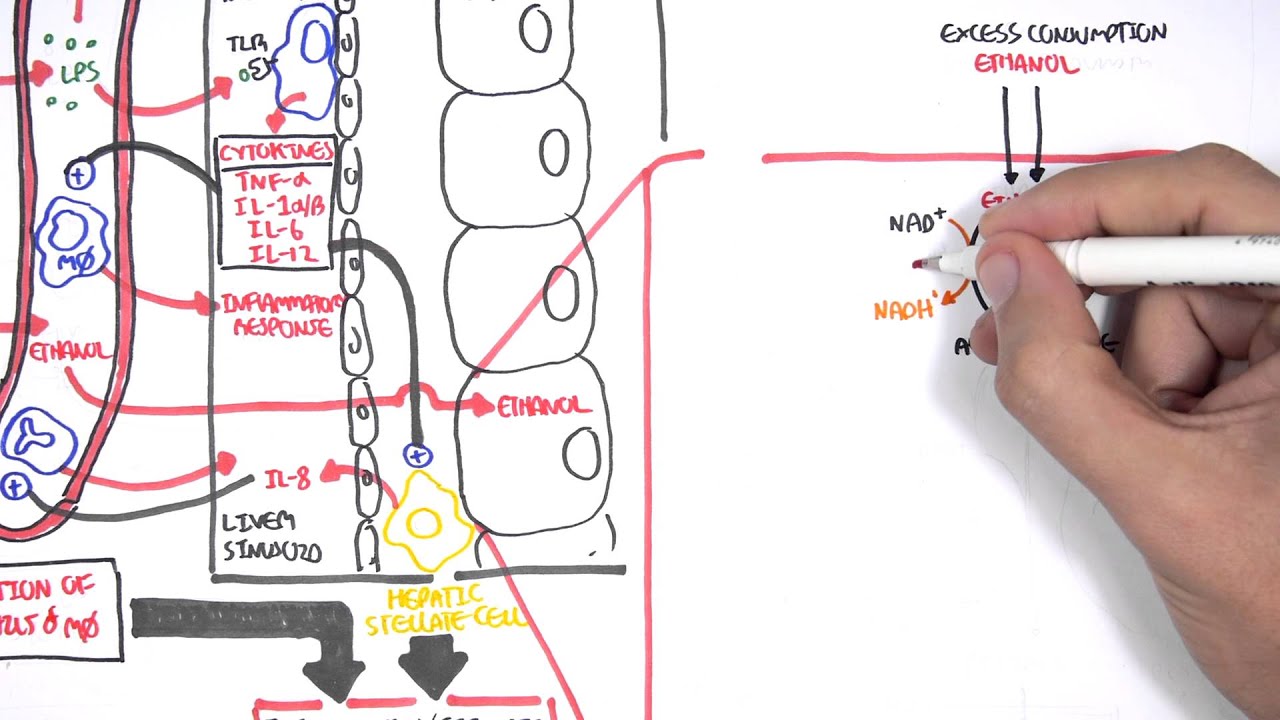 TLR
LPS
CYTOKINES
TNF-α
IL-1α/β
IL-6
IL-12
MØ
INFLAMMATORY
RESPONSE
ETHANOL
ETHANOL
IL-8
LIVER
SINUSOID
TION OF
& MØ
HEPATIC
STELLATE CELL
EXCESS CONSUMPTION
ETHANOL
NAD+
NADH